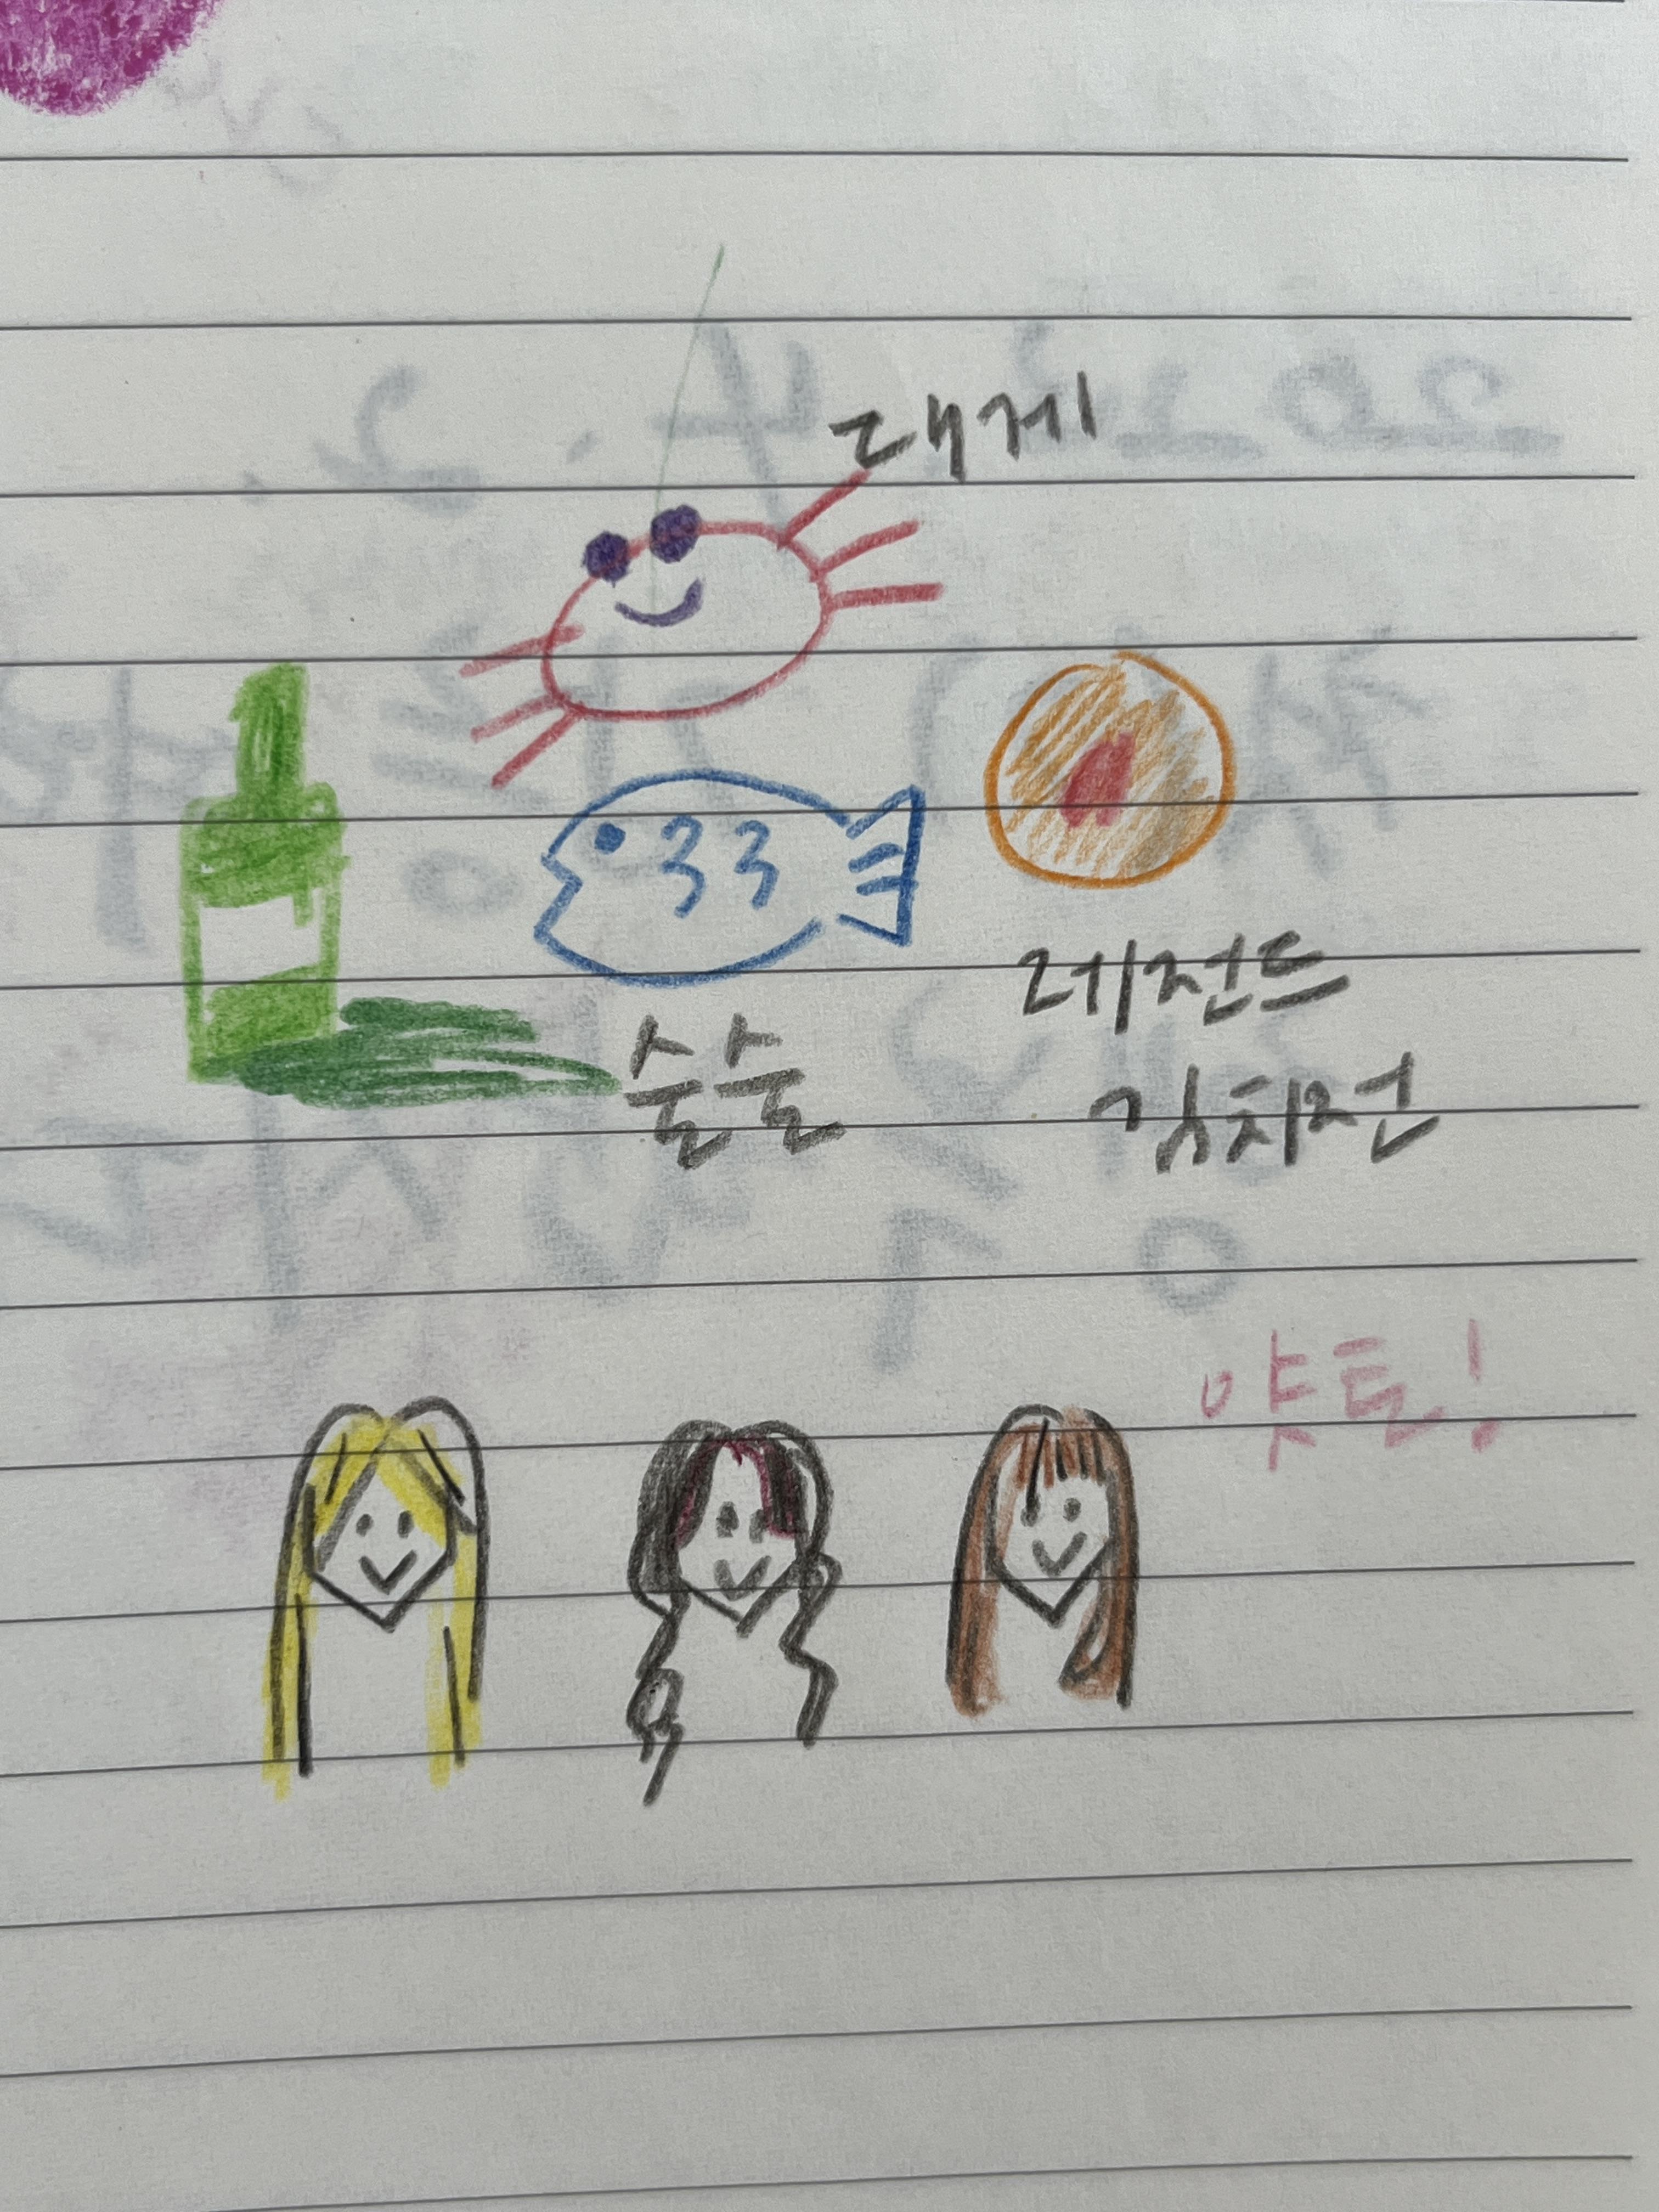 대게
레전드
술술
김치전